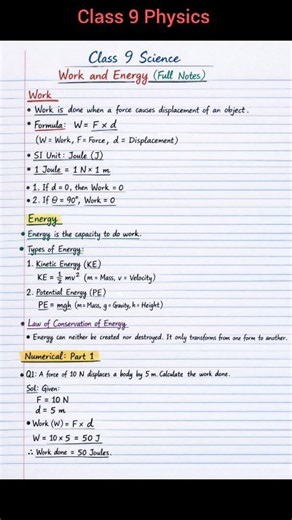 Class 9 Physics
Class 9 Science
Work and Energy (Full Notes)
Work
• Work is done when a force causes displacement of an object.
• Formula: W = F × d
(W = Work, F = Force, d = Displacement)
• SI Unit: Joule (J)
• 1 Joule = 1 N × 1 m
• 1. If d = 0, then Work = 0
• 2. If θ = 90°, Work = 0
Energy
• Energy is the capacity to do work.
• Types of Energy:
1. Kinetic Energy (KE)
KE = ½ mv² (m = Mass, v = Velocity)
2. Potential Energy (PE)
PE = mgh (m = Mass, g = Gravity, h = Height)
• Law of Conservation of Energy
• Energy can neither be created nor destroyed. It only transforms from one form to another.
Numerical: Part 1
• Q1: A force of 10 N displaces a body by 5 m. Calculate the work done.
Sol: Given:
F = 10 N
d = 5 m
• Work (W) = F × d
W = 10 × 5 = 50 J
∴ Work done = 50 Joules.